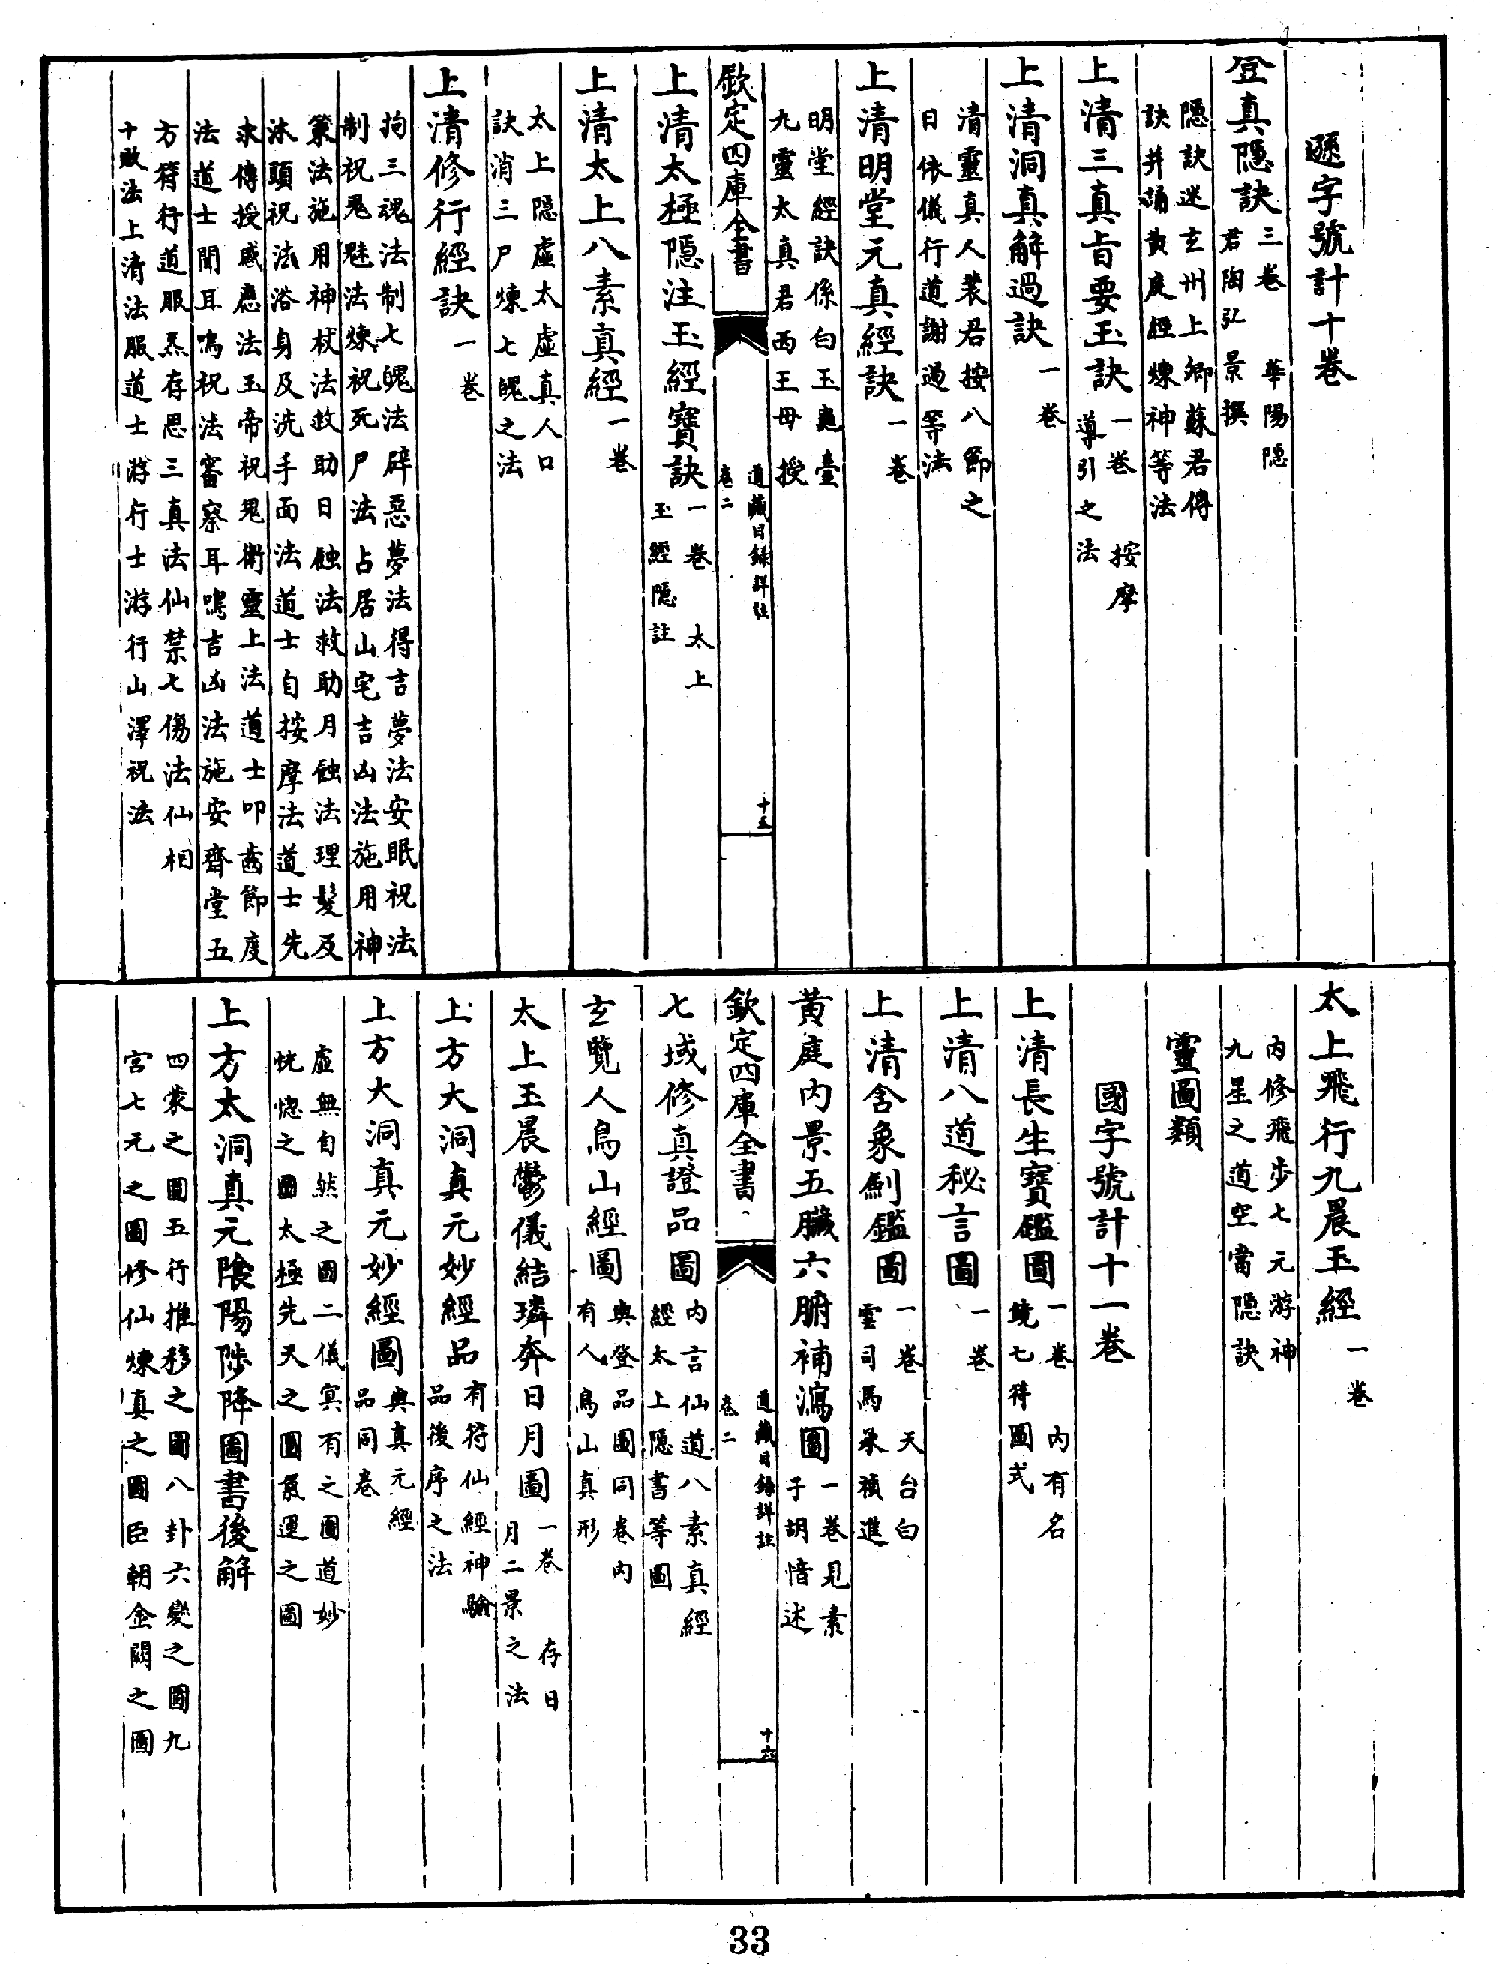 遜字號計十卷
登真隱訣三卷　華陽隱
君陶弘景撰
隱訣述玄州上卿蘇君傳
訣并誦黃庭經煉神等法
上清三真旨要玉訣一卷　按摩
導引之法
上清洞真解過訣一卷
清靈真人裴君按八節之
日依儀行道謝過等法
上清明堂元真經訣一卷
明堂經訣係白玉龜臺
九靈太真君西王母授
欽定四庫全書
道藏目錄詳註
卷二
十五
上清太極隱注玉經寶訣一卷　太上
玉經隱註
上清太上八素真經一卷
太上隱虛太虛真人口
訣消三尸煉七魄之法
上清修行經訣一卷
拘三魂法制七魄法辟惡夢法得吉夢法安眠祝法
制祝鬼魅法煉祝死尸法占居山宅吉凶法施用神
策法施用神杖法救助日蝕法救助月蝕法理髮及
沐頭祝法浴身及洗手面法道士自按摩法道士先
求傳授感應法玉帝祝鬼衛靈上法道士叩齒節度
法道士聞耳鳴祝法審察耳鳴吉凶法施安齋堂五
方符行道服炁存思三真法仙禁七傷法仙相
十敗法上清法服道士游行士游行山澤祝法
太上飛行九晨玉經一卷
內修飛步七元游神
九星之道空常隱訣
靈圖類
國字號計十一卷
上清長生寶鑑圖一卷　內有名
境七符圖式
上清八道秘言圖一卷
上清含象劍鑑圖一卷　天台白
雲司馬承禎進
黃庭內景五臟六腑補瀉圖一卷見素
子胡愔述
欽定四庫全書
道藏目錄詳註
卷二
十六
七域修真證品圖內言仙道八素真經
經太上隱書等圖
玄覽人鳥山經圖與登品圖同卷內
有人鳥山真形
太上玉晨鬱儀結璘奔日月圖一卷　存日
月二景之法
上方大洞真元妙經品有符仙經神驗
品後序之法
上方大洞真元妙經圖與真元經
品同卷
虛無自然之圖二儀冥有之圖道妙
恍惚之圖太極先天之圖氣運之圖
上方太洞真元陰陽陟降圖書後解
四象之圖五行推移之圖八卦六變之圖九
宮七元之圖修仙煉真之圖臣朝金闕之圖
33